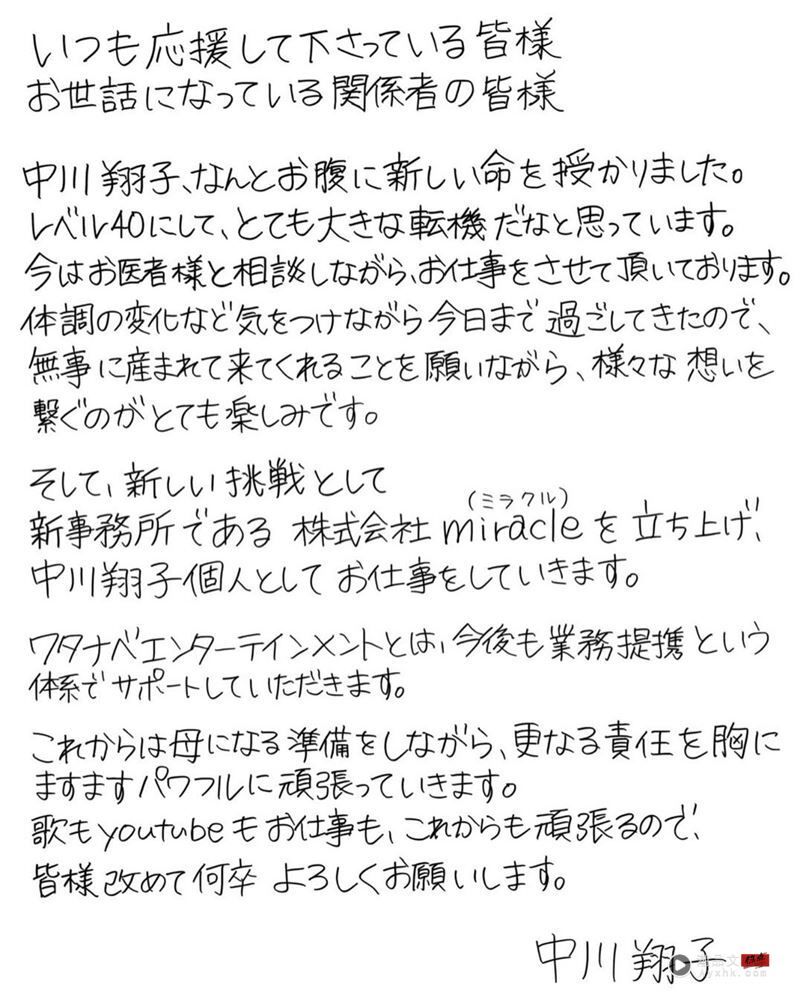 いつも応援して下さっている皆様
お世話になっている関係者の皆様
中川翔子、なんとお腹に新しい命を授かりました。
レベル40にして、とても大きな転機だなと思っています。
今はお医者様と相談しながら、お仕事をさせて頂いております。
体調の変化など気をつけながら今日まで過ごしてきたので、
無事に産まれて来てくれることを願いながら、様々な想いを
繋ぐのがとても楽しみです。
そして、新しい挑戦として
(ミラクル)
新事務所である株式会社miracleを立ち上げ、
中川翔子個人としてお仕事をしていきます。
ワタナベエンターテインメントとは、今後も業務提携という
体系でサポートしていただきます。
これからは母になる準備をしながら、更なる責任を胸に
ますますパワフルに頑張っていきます。
歌もyoutubeもお仕事も、これからも頑張るので、
皆様改めて何卒よろしくお願いします。
中川翔子